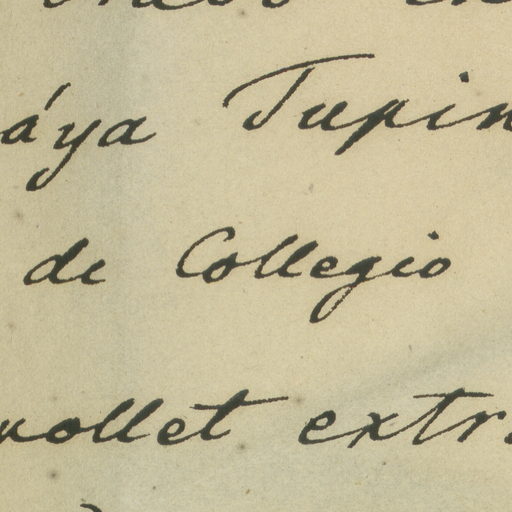 áya Tupin
de Collegio
uollet extr